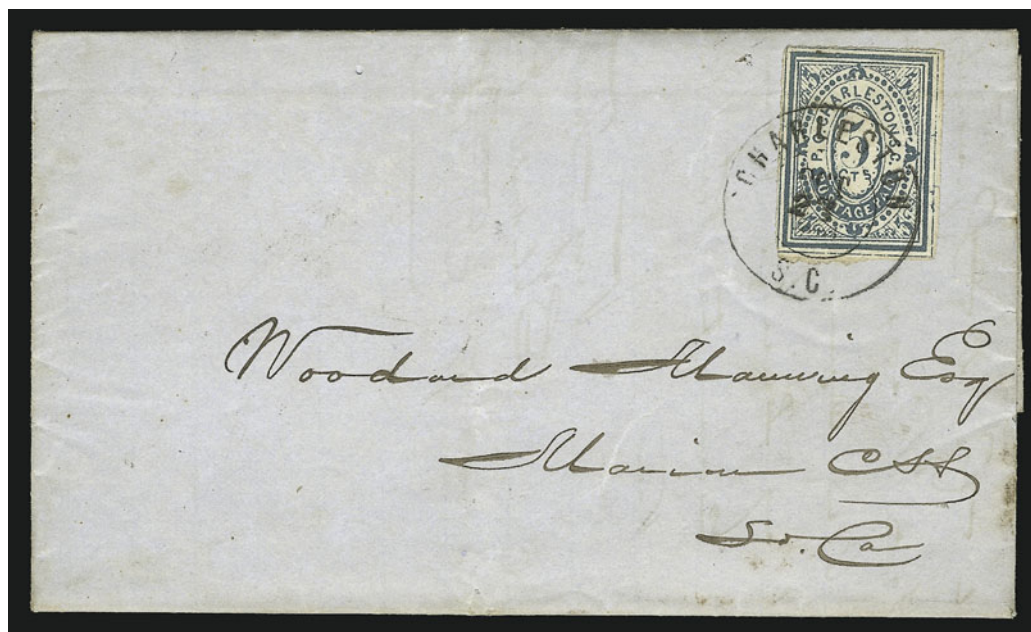 P.O. CHARLESTON, S.C.
5
CTS.
POSTAGE PAID
CHARLESTON
S.C.
Woodard Manning Esq
Marion C H
So. Ca